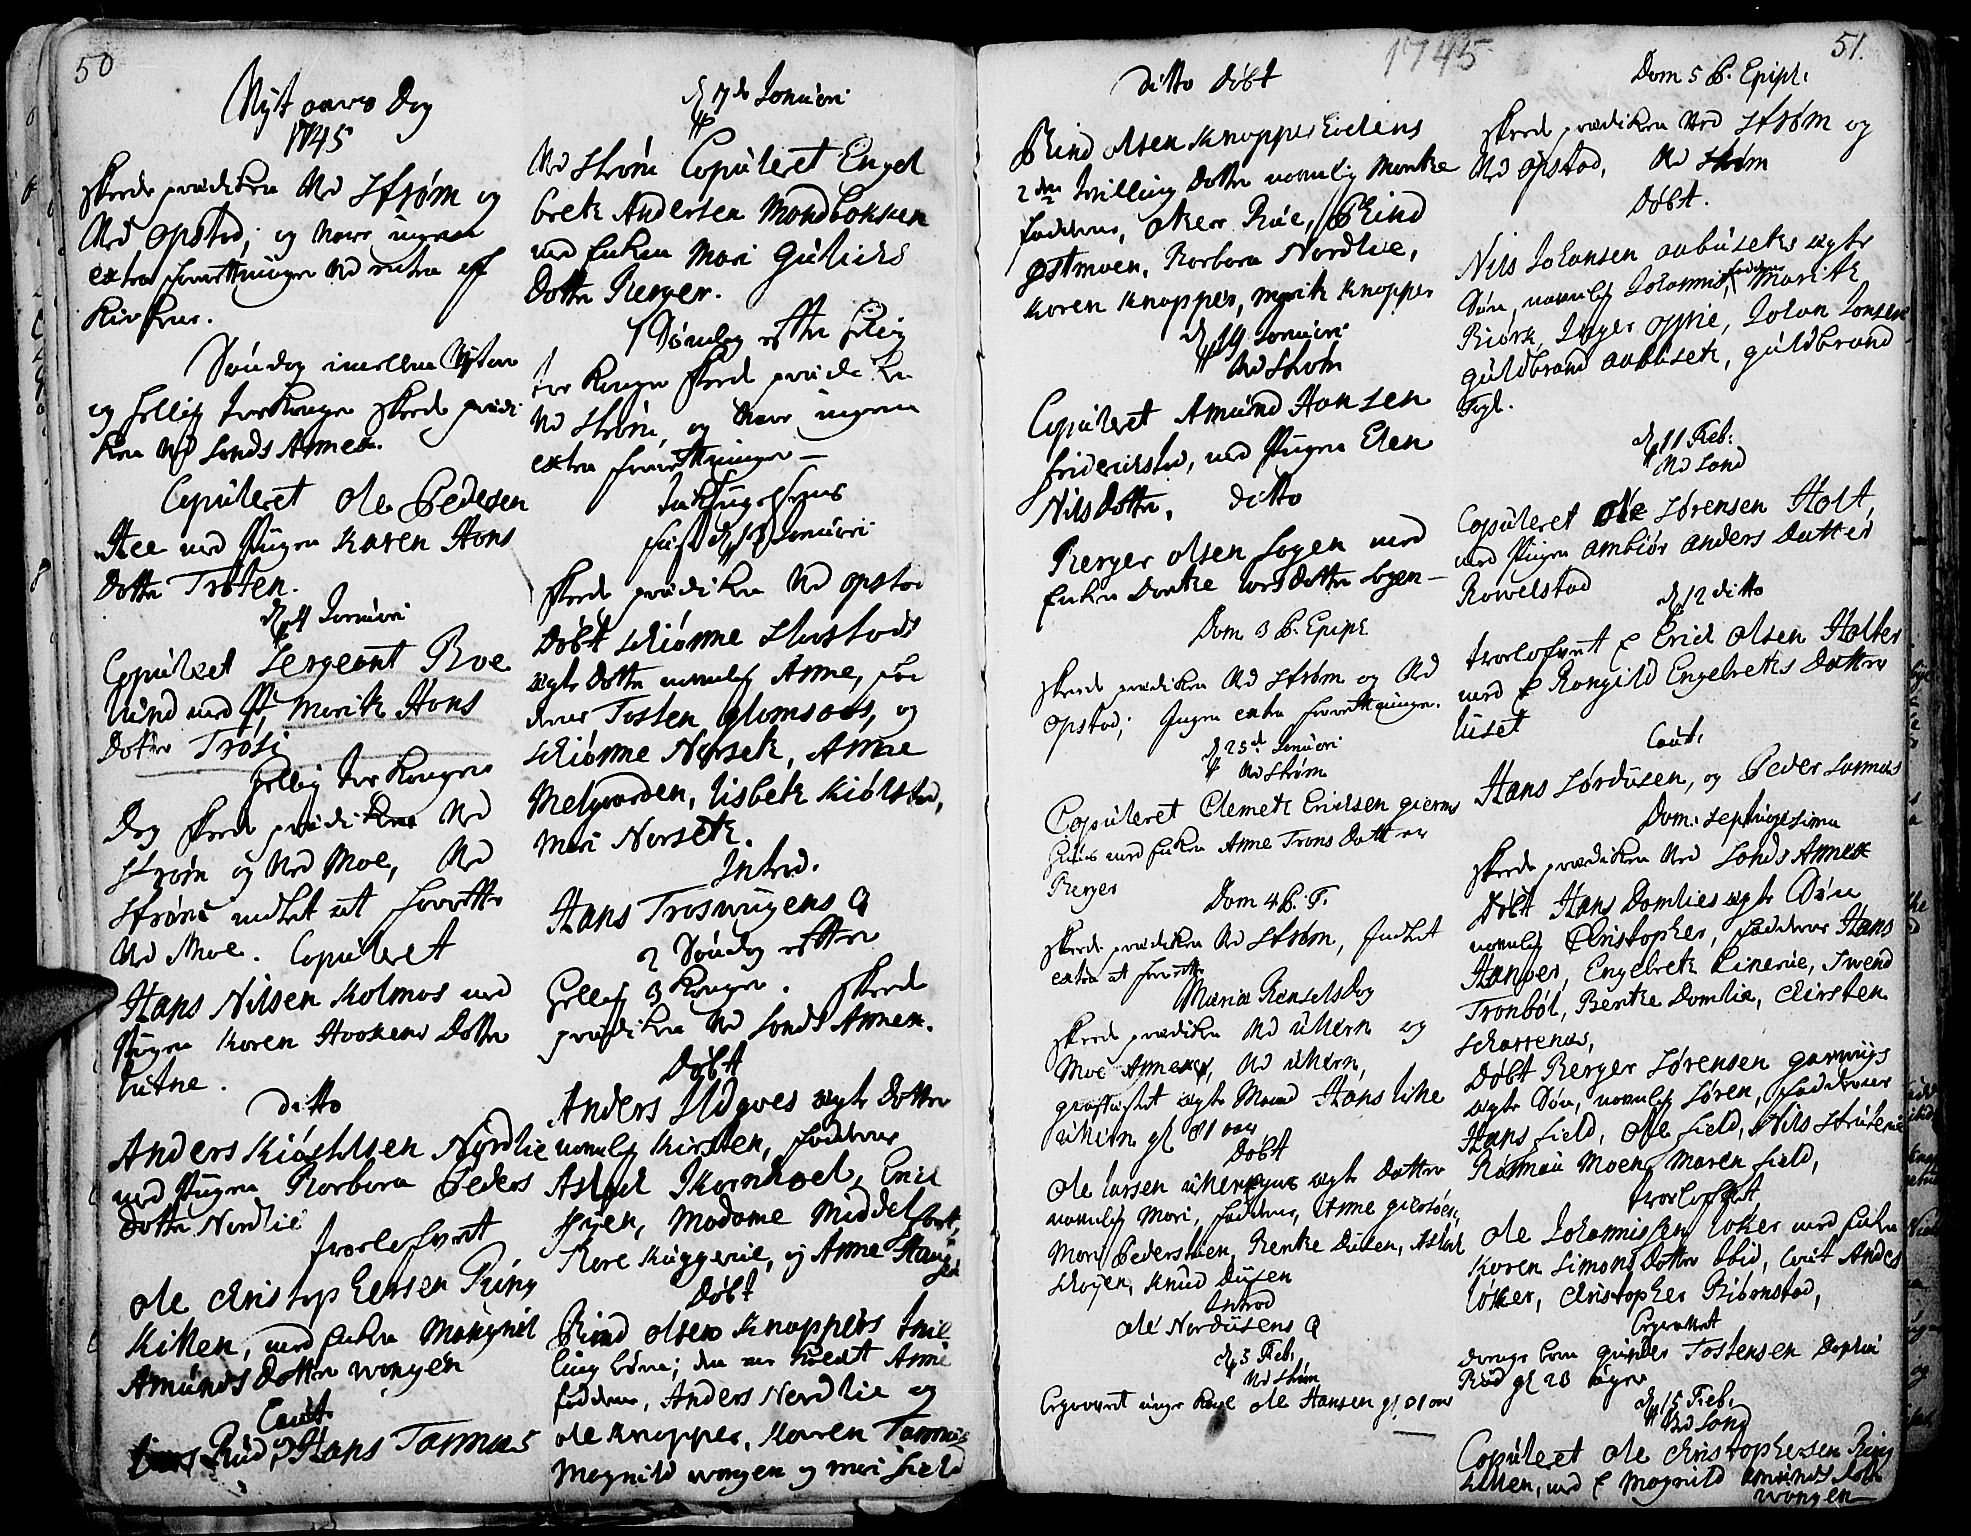 50
Nyt aars Dag
1745
skeede prædiken Ved Strøm og
Ved opstad; og vare ingen
extra forretninger
Kirkene.
Søndag imellem Nytaar
og hellig tre Konger skeede prædi
ken Ved Sonds Annex.
Copuleret Ole Pedersen
Hee med Pigen Karen Hans
Dotter Trøten.
d 4 Januari
Copuleret Sergeant Roe
lund med P. Marit Hans
Dotter Trøsi
hellig tre Kongers
Dag skeede prædiken Ved
Strøm og Ved Moe, Ved
Strøm indtet at forrette
Ved Moe. Copuleret
Hans Nilsen Kolmos med
Pigen Karen Haagens Dotter
Lutne.
ditto
Anders Kiøstelsen Nordlie
med Pigen Barbara Peders
Dotter Nordlie
trolofveet
Ole Christophersen Ring
Kilken, med Enken Mangnil
Amunds Dotter wongen
Caut.
Rud, og Hans Tarmus
d 7de Januari
Ved Strøm Copuleret Engel
bret Andersen Mondbakken
med Enken Mari Gulichs
Dotter Berger.
1 Søndag efter hellig
tre Konger skeede prædiken
Ved Strøm, og vare ingen
extra forretninger –
Tacksigelsens
fest d 18 Januari
skeede prædiken Ved opstad
Døbt Schiønne Slaastads
ægte Dotter navnlig Anne, fad
derne Tosten glomsaas, og
Schiønne Norsek, Anne
Melgaarden, Lisbet Kiølstad,
Mari Norsetk.
Introd.
Hans Troswigens Q
2 Søndag efter
hellig 3 Konger. skeede
prædiken Ved Sonds Annex.
Døbt
Anders Ildgoes ægte Dotter
navnlig Kirsten, fadderne
Asloch Skornhoel, Erich
Madame Middel
fart,
Kare Kuggerue, og Anne Haug
sæ
Døbt
Rind Olsen Knappers Tvil
ling børn; den ene kaldt Anne
faddere, Anders Nordlie og
Ole Knapper, Karen Tarmus
Magnild wongen og mari field
1745
51.
ditto døbt
Rind Olsen Knapper
2den Tvilling Dotter navnlig Marthe
fadderne, Aker Rue, Rind
Østmoen, Barbara Nordlie,
Karen Knapper, Marit Knapper
d 19 Januari
Ved Strøm
Copuleret Amund Hansen
Friderichstad, med Pigen Elen
Nils Dotter. ditto
Berger Olsen Sogen med
Enken Dorthe Lars Dotter Sogen –
Dom 3 P. Epiph
skeede prædiken Ved Strøm og Ved
opstad; Ingen extra forretninger.
d 25de Januari
Ved Strøm
Copuleret Clemet Erichsen gierms
huus med Enken Anne Trons Dotter
Berger
Dom 4 P. E.
skeede prædiken Ved Strøm, Indtet
extra at forrette
Mariæ Renselsdag
skeede prædiken Ved ukern og
Moe Annexer, Ved ukern,
græftfæstet ægte Mand Hans Like
ukern gl 81 aar
Døbt
Ole Larsen ægte Datter
navnlig Mari, fadderne, Anne giersøen,
Mari Pedersmoen, Benthe Dusen, Asloch
Schøyen, Knud Dusen
Introd
Ole Nordusens Q
d 5 Feb.
Ved Strøm
Begravet unge Karl Ole Hansen gl 21 aar
Dom 5 P. Epiph.
skeede prædiken Ved Strøm og
Ved opstad, Ved Strøm
Døbt.
Nils Johansen aabuseths ægte
Søn, navnlig Johannis, faddere Marith
Biørk, Inger opsie, Johan Jonsen
guldbrand aabusek, guldbrand
Fogl.
d 11 Feb.
Ved Sond
Copuleret Ole Sørensen Holt,
med Pigen ambiør anders Datter
Rowelstad
d 12 ditto
trolofveet E Erich Olsen Holter
med E Rangild Engelbrets Datter
Liset
Caut.
Hans Sørdusen, og Peder Sarmus
Dom. septuagesima
skeede prædiken Ved Sonds Annex
Døbt Hans Domlies ægte Søn
navnlig Christopher, fadderne Hans
Hanper, Engelbret Linerue, Twend
Tronbøl, Benthe Domlie, Chirsten
Scharrenes,
Døbt Berger Sørensen garwigs
ægte Søn, navnlig Søren, fadderne
Hans field, Ole field, Nils
Rasmus Moen, Maren field,
trolofveet
Ole Johannissen Loker med Enken
Karen Simons Dotter ibid, Caut Anders
Løker, Christopher Biørnstad,
Begravet
drenge barn gunder Tostensen
Rud gl 23 uger
d 15 Feb.
Ved Sond
Copuleret Ole Christophersen Ring
kilken, med E Magnild Amunds Dotter
wongen